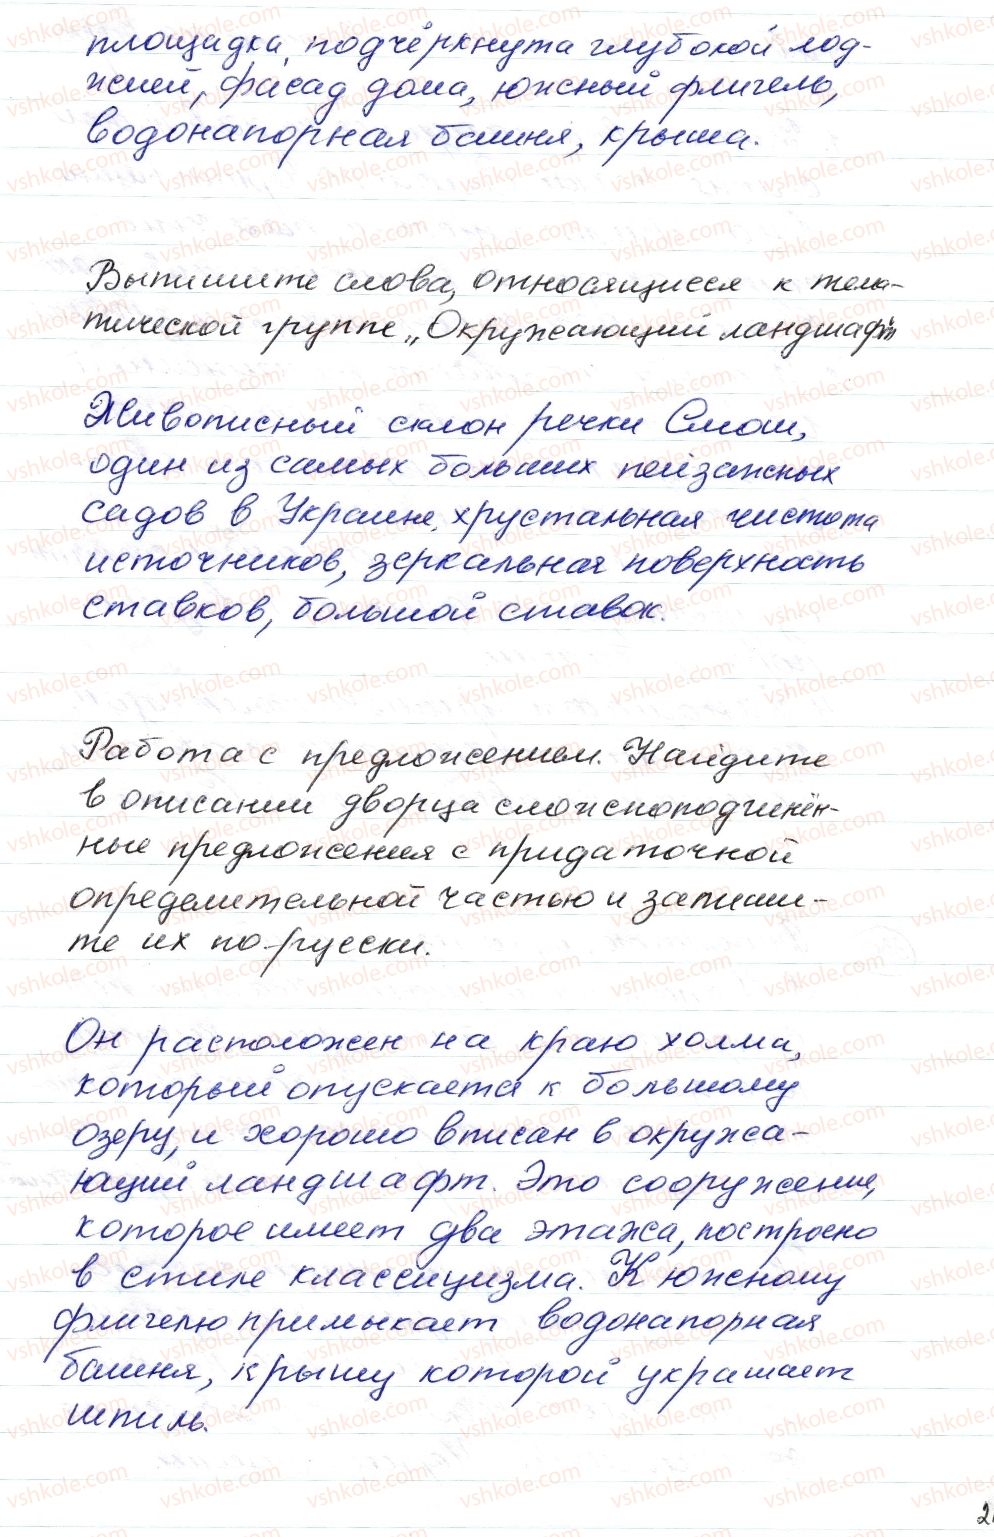 площадка, подчёркнута глубокой лод-
жией, фасад дома, южный флигель,
водонапорная башня, крыша.
Выпишите слова, относящиеся к тема-
тической группе „Окружающий ландшафт"
Живописный склон речки Смош,
один из самых больших пейзажных
садов в Украине, хрустальная чистота
источников, зеркальная поверхность
ставков, большой ставок.
Работа с предложением. Найдите
в описании дворца сложноподчинён-
ные предложения с придаточной
определительной частью и запиши-
те их по-русски.
Он расположен на краю холма,
который опускается к большому
озеру, и хорошо вписан в окружа-
ющий ландшафт. Это сооружение,
которое имеет два этажа, построено
в стиле классицизма. К южному
флигелю примыкает водонапорная
башня, крышу которой украшает
шпиль.